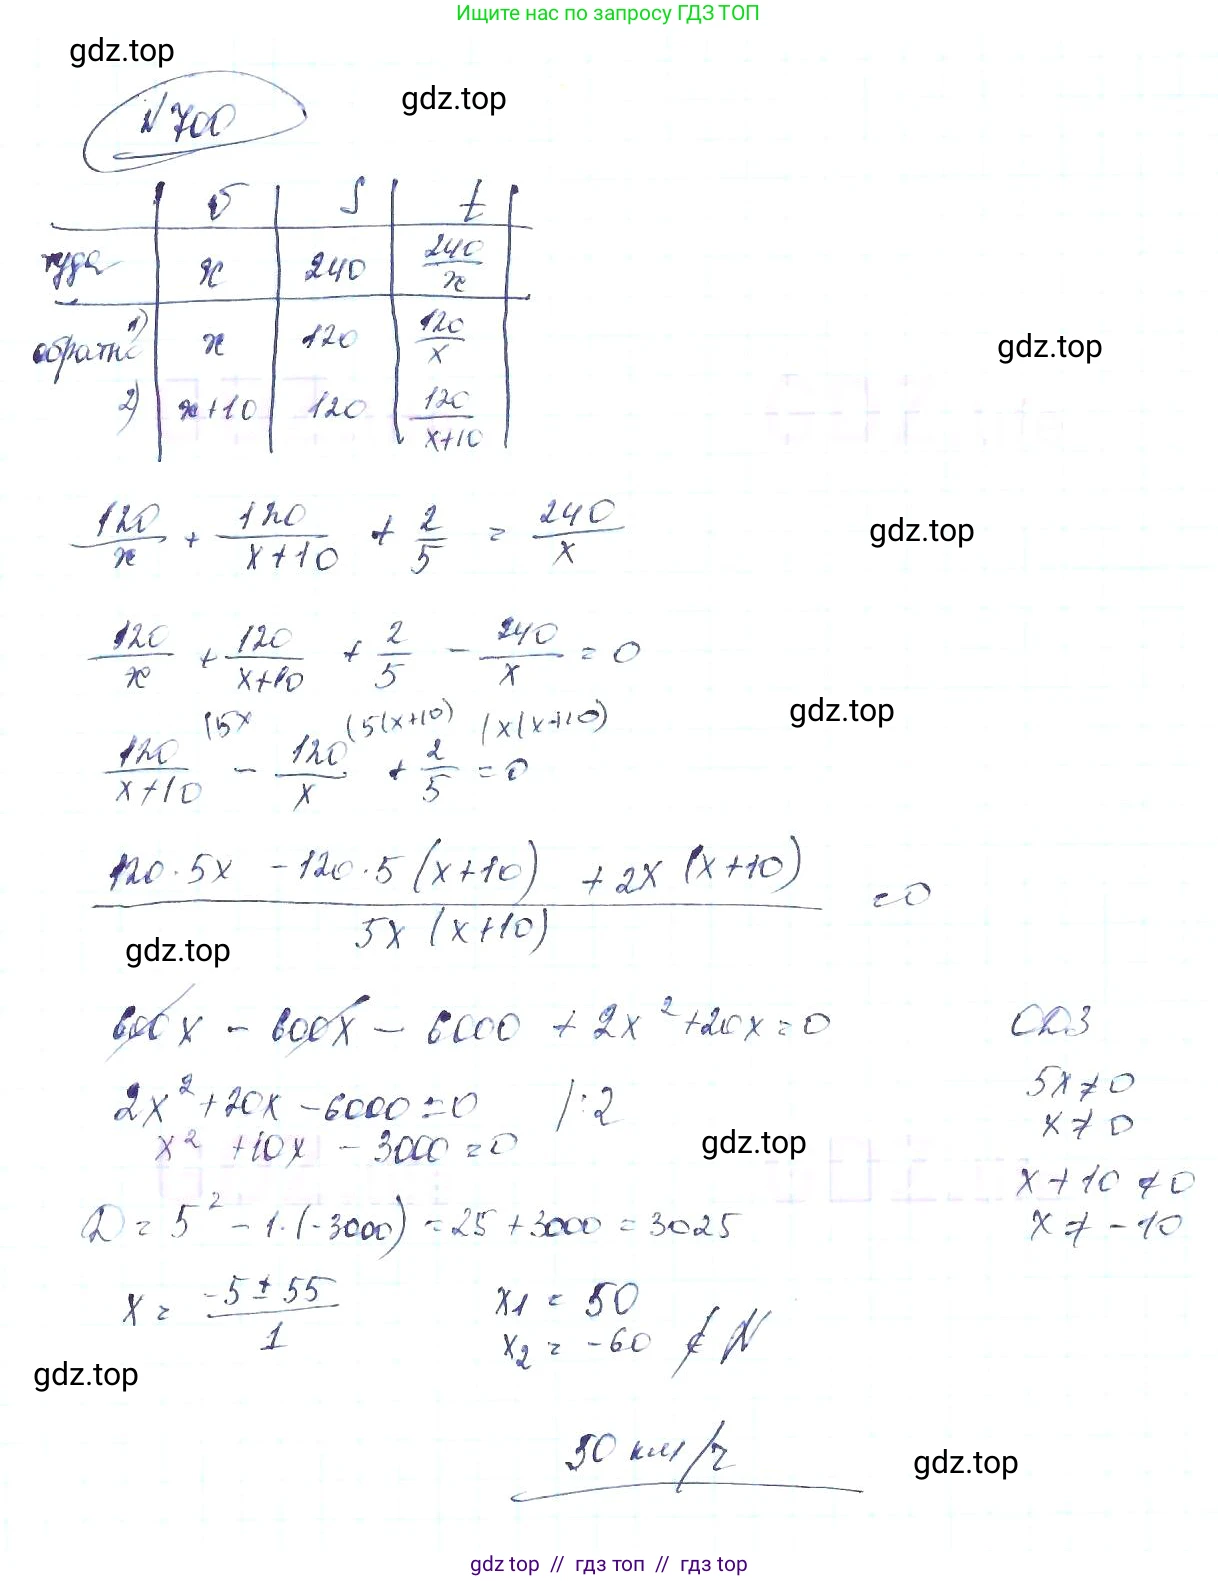 Ищите нас по запросу ГДЗ ТОП
gdz.top
gdz.top
№ 700
υ S t
туда x 240 240/x
обратно 1) x 120 120/x
gdz.top
2) x+10 120 120/(x+10)
120/x + 120/(x+10) + 2/5 = 240/x
gdz.top
120/x + 120/(x+10) + 2/5 - 240/x = 0
gdz.top
120/(x+10) (5x - 120/x (5(x+10) + 2/5 (x(x+10) = 0
(120·5x - 120·5(x+10) + 2x(x+10))/(5x(x+10)) = 0
gdz.top
600x - 600x - 6000 + 2x² + 20x = 0
ОДЗ
5x ≠ 0
2x² + 20x - 6000 = 0 /:2
x ≠ 0
x² + 10x - 3000 = 0
gdz.top
x + 10 ≠ 0
D = 5² - 1·(-3000) = 25 + 3000 = 3025
x ≠ -10
x = (-5 ± 55)/1
x1 = 50
x2 = -60 ∉ N
gdz.top
50 км/ч
gdz.top
gdz top // гдз топ // gdz top